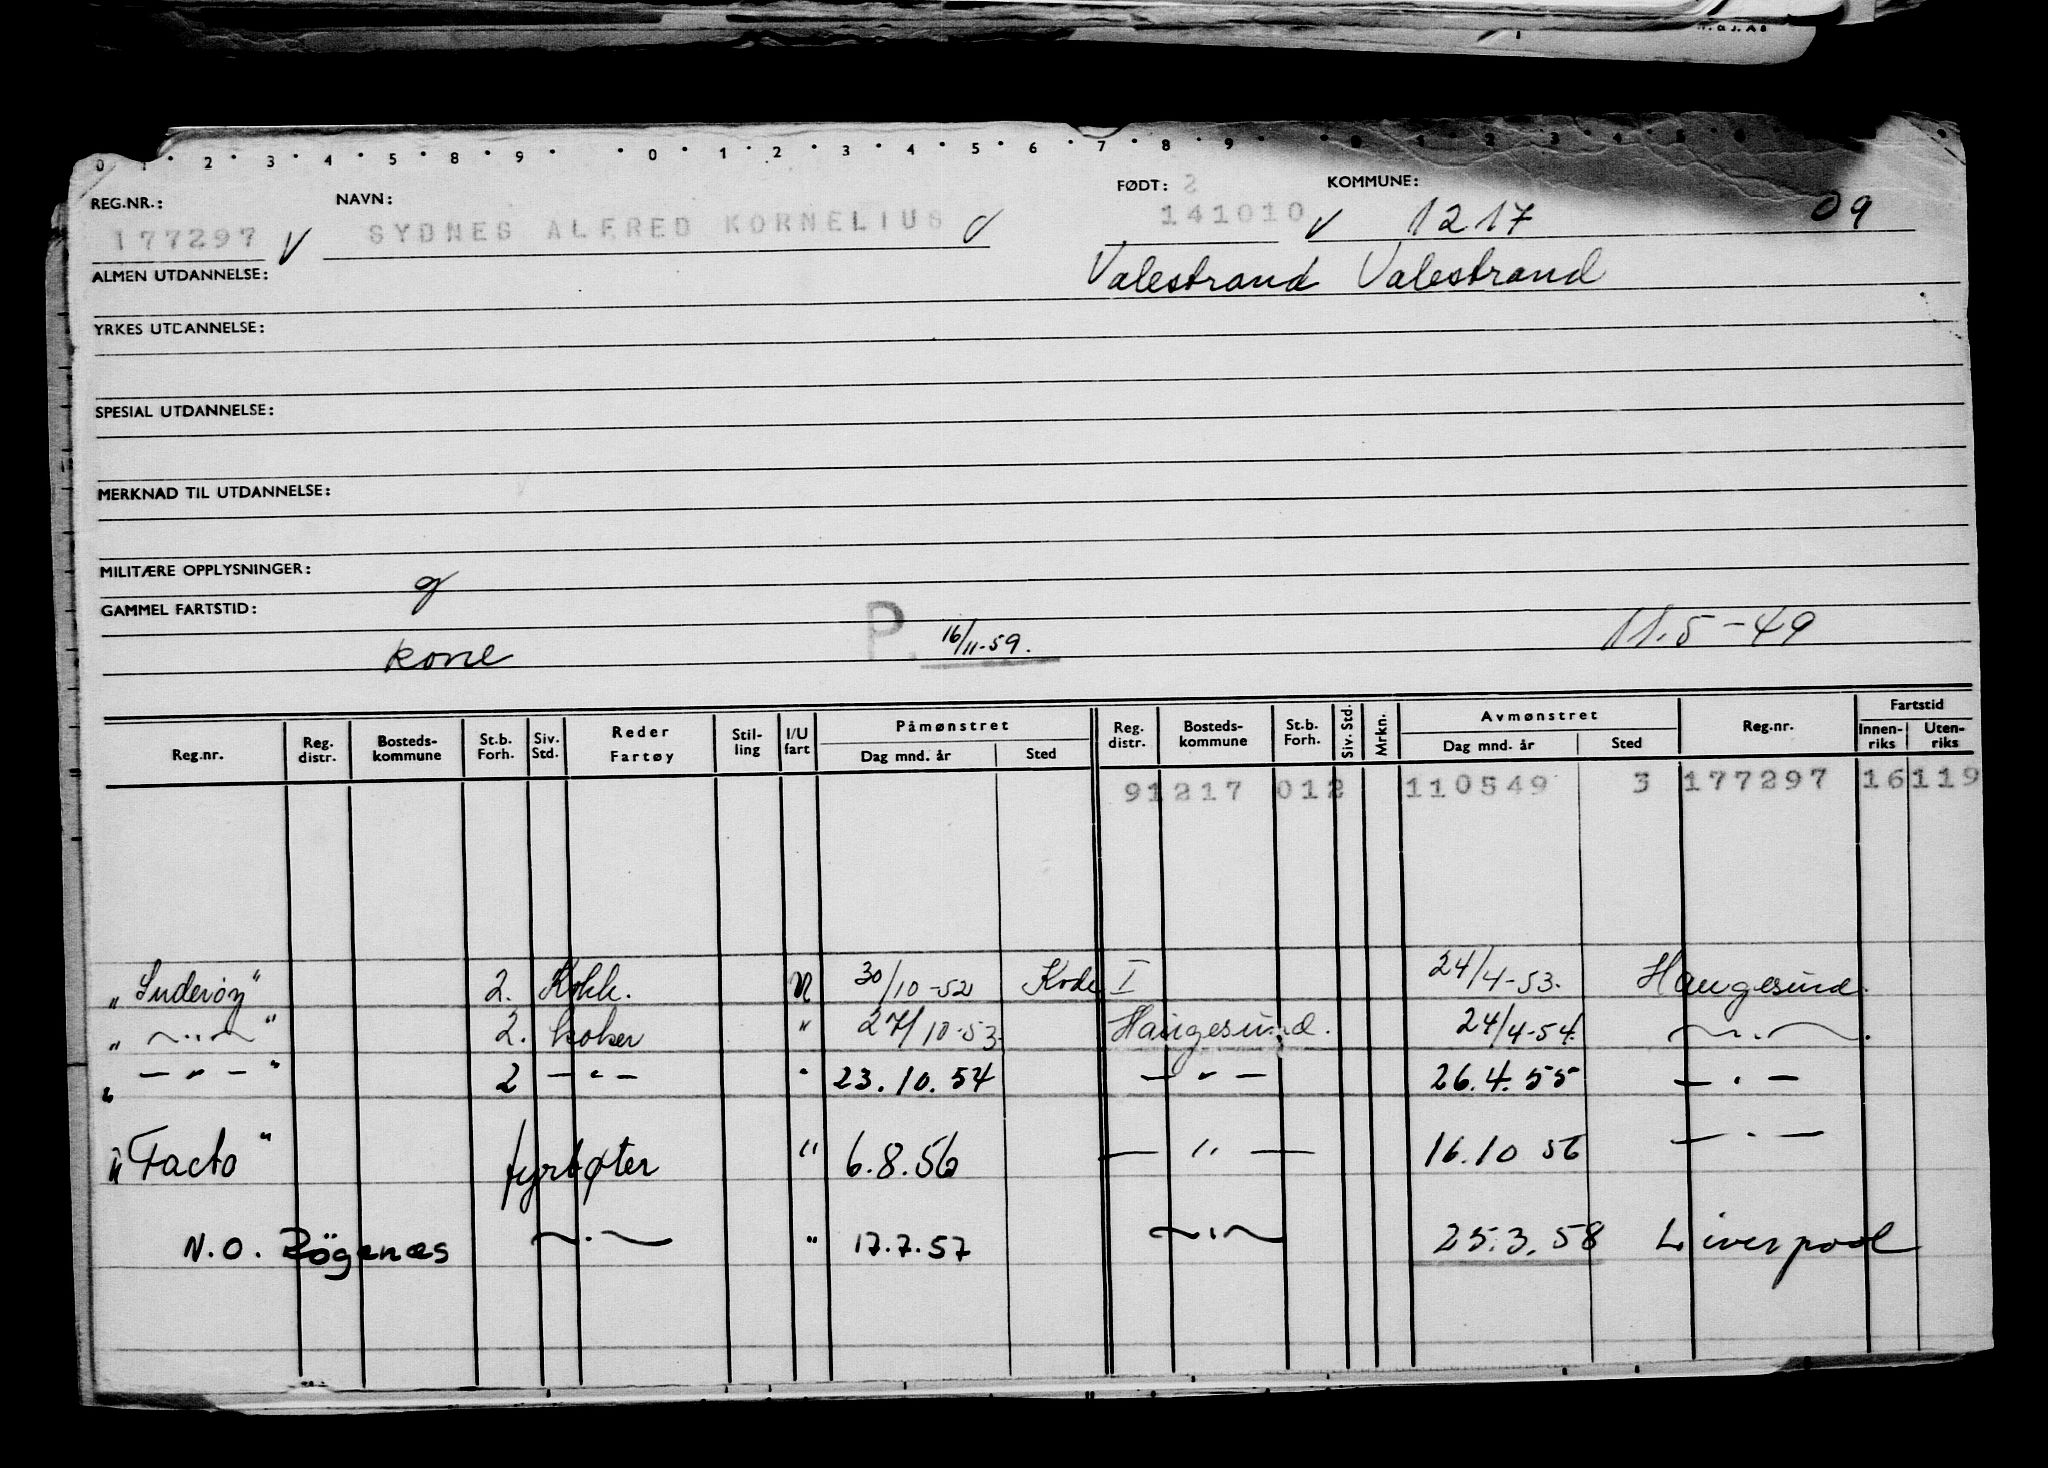 0 1 2 3 4 5 8 9 0 1 2 3 4 5 6 7 8 9
REG.NR.: NAVN: FØDT: 2 KOMMUNE:
177297 V SYDNES ALFRED KORNELIUS V 141010 V 1217 09
ALMEN UTDANNELSE: Valestrand Valestrand
YRKES UTDANNELSE:
SPESIAL UTDANNELSE:
MERKNAD TIL UTDANNELSE:
MILITÆRE OPPLYSNINGER: g
GAMMEL FARTSTID:
kone P. 16/11-59. 11.5-49
Reg.nr. Reg. distr. Bosteds-kommune St.b. Forh. Siv. Std. Reder Fartøy Stil-ling I/U fart Påmønstret Dag mnd. år Sted Reg. distr. Bosteds-kommune St.b. Forh. Siv. Std. Mrkn. Avmønstret Dag mnd. år Sted Reg.nr. Fartstid Innen-riks Uten-riks
91217 012 110549 3 177297 16 119
„Suderøy" 2. Kokk. U 30/10-52 Kode I 24/4-53. Haugesund.
„ —"— " 2. koker " 27/10-53 Haugesund. 24/4-54. —.—.
„ —"— " 2 —"— " 23.10.54 —"— 26.4.55 —.—
„Facto" fyrbøter " 6.8.56 —"— 16.10 56 —.—
N.O. Rögenæs —.— " 17.7.57 —.— 25.3.58 Liverpool